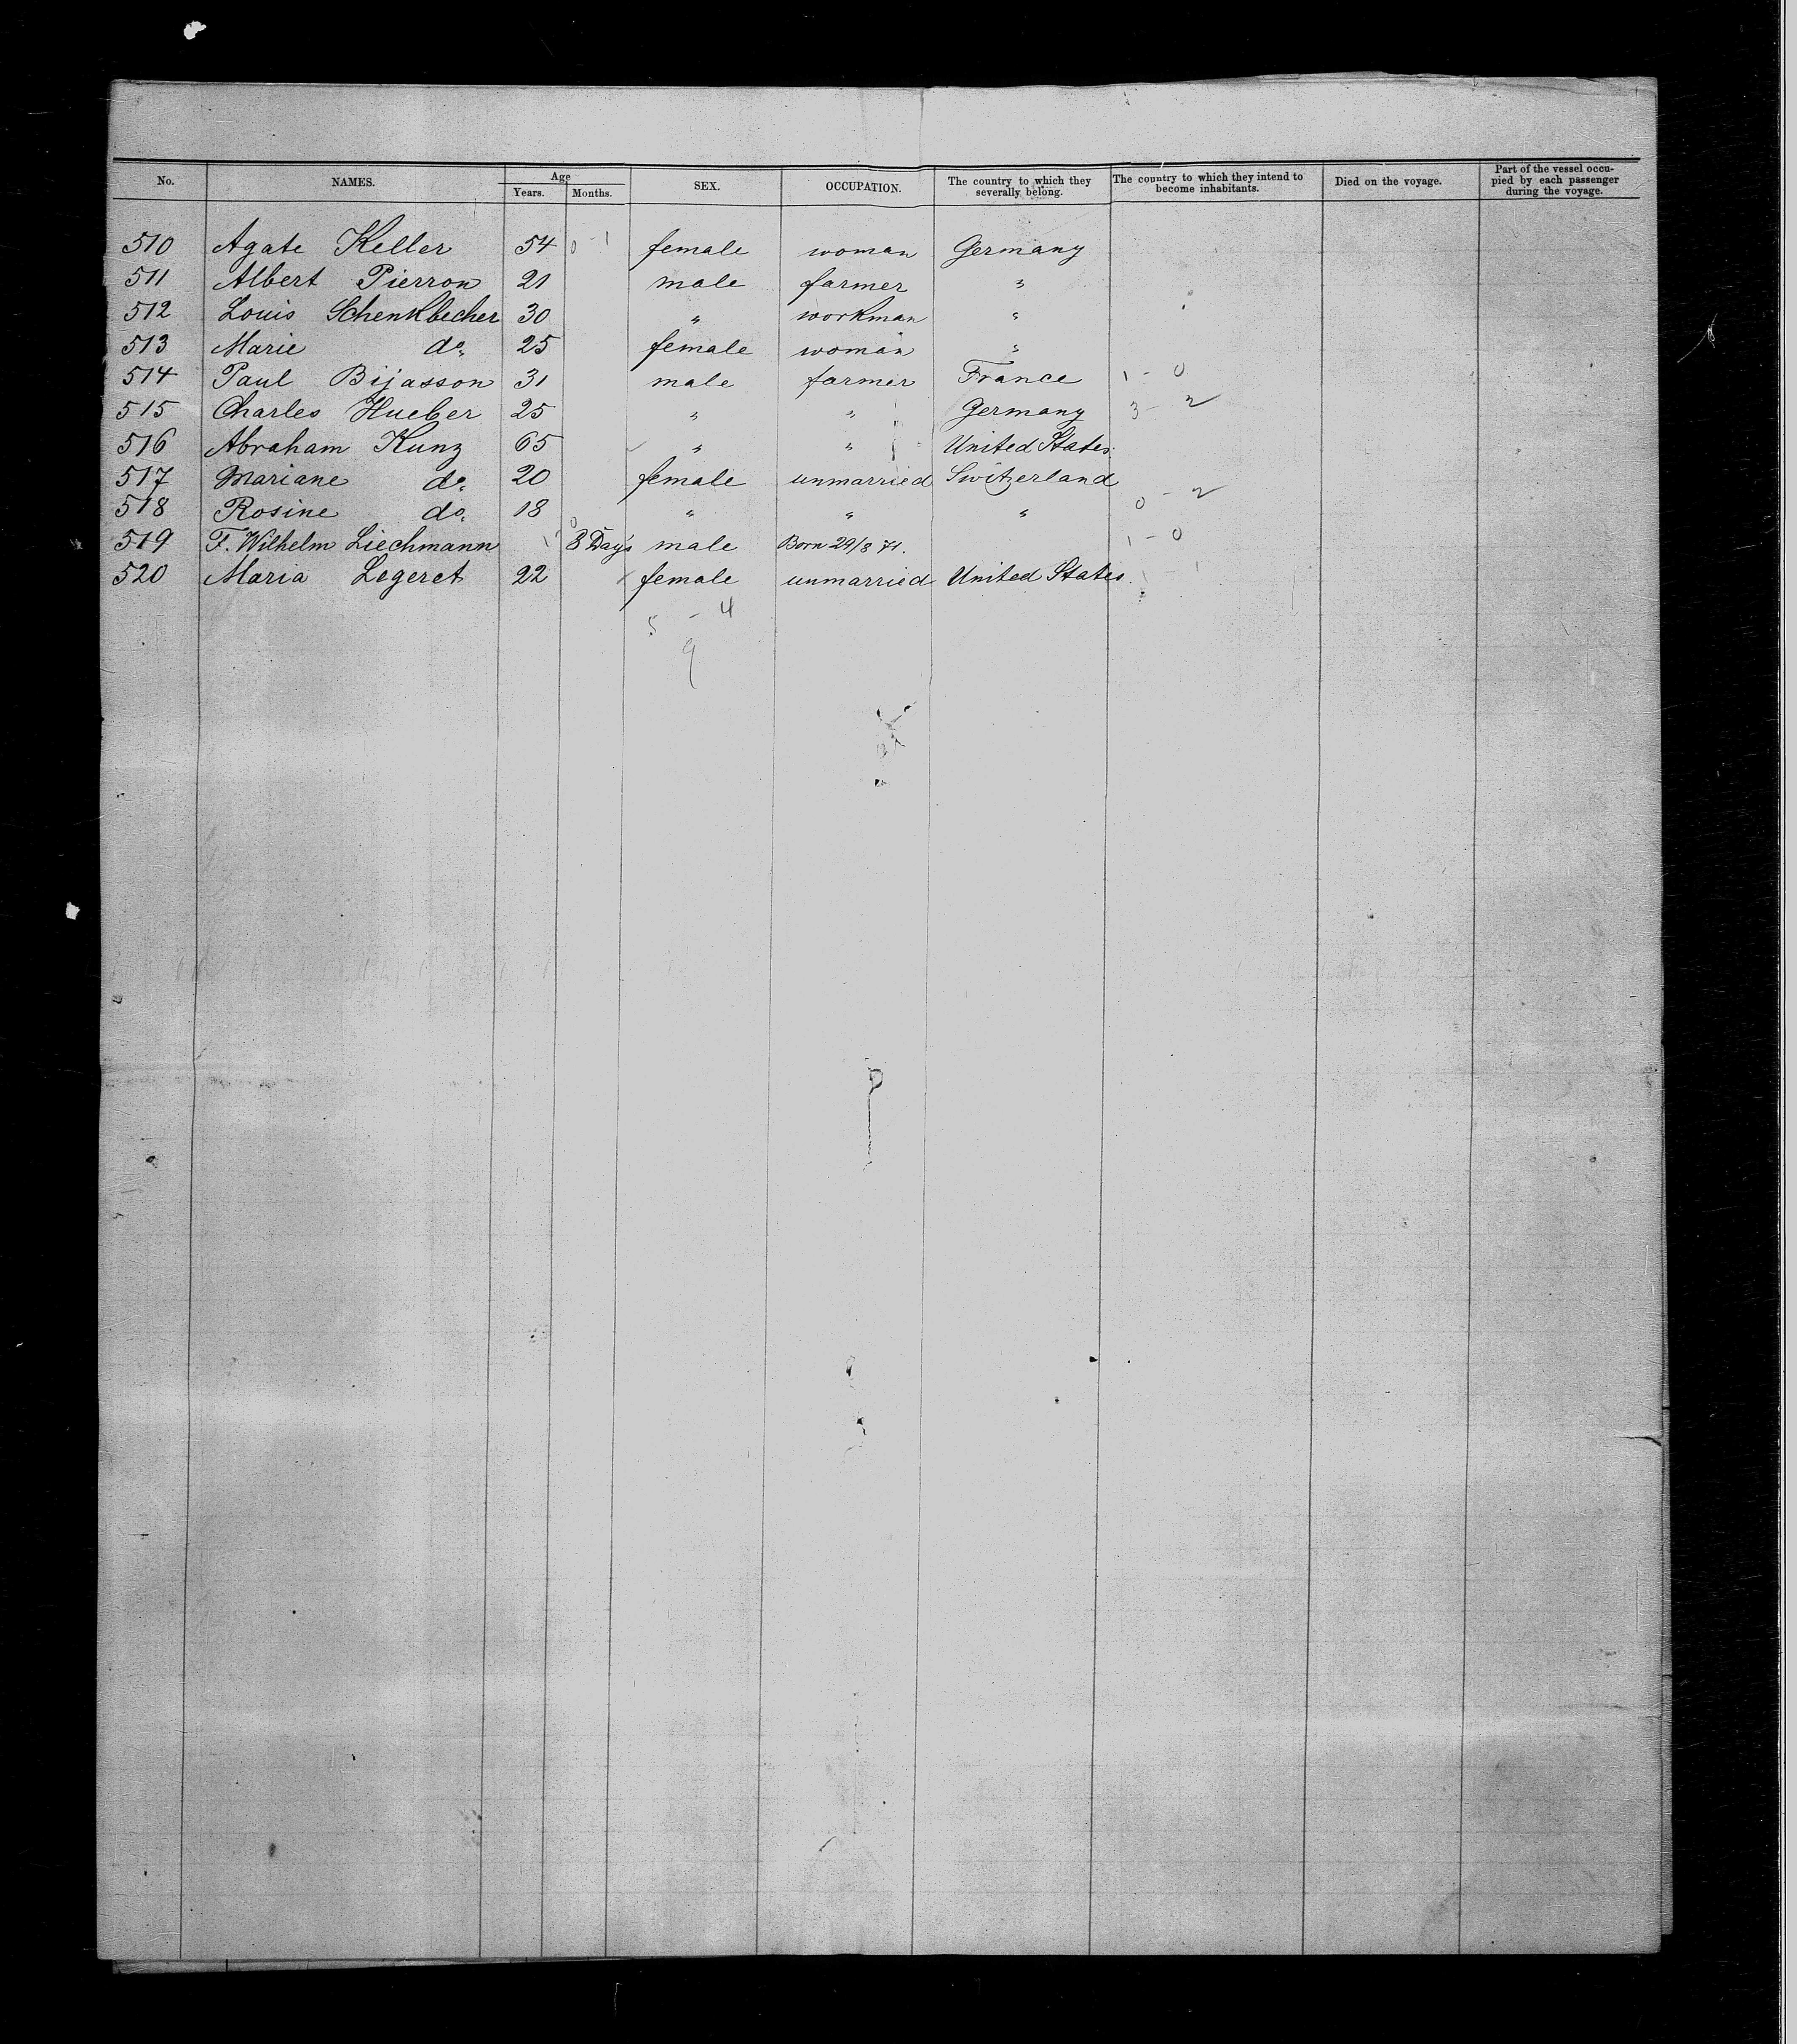 No. NAMES. Age Years. Months. SEX. OCCUPATION. The country to which they severally belong. The country to which they intend to become inhabitants. Died on the voyage. Part of the vessel occupied by each passenger during the voyage.
510 Agate Keller 54 0 - 1 female woman Germany
511 Albert Pierron 21 male farmer "
512 Louis Schenkbecher 30 " workman "
513 Marie do. 25 female woman "
514 Paul Bijasson 31 male farmer France 1 - 0
515 Charles Hueber 25 " " Germany 3 - 2
516 Abraham Kunz 65 " " United States.
517 Mariane do. 20 female unmarried Switzerland
518 Rosine do. 18 " " " 0 - 2
519 F. Wilhelm Liechmann 8 Days male Born 29/8 71. 1 - 0
520 Maria Legeret 22 female unmarried United States. 1 - 1
5 - 4
9